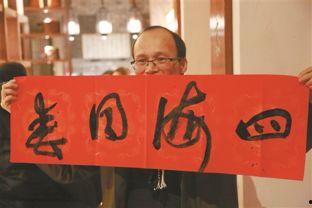 四海同春